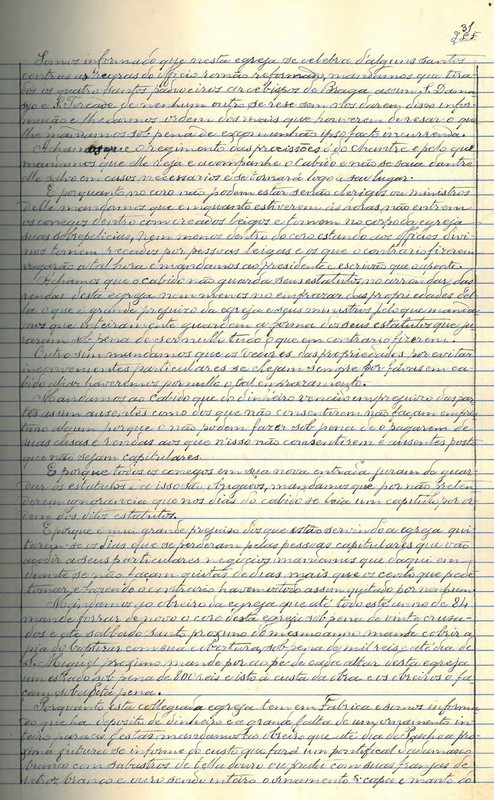 31
Somos informado que nesta egreja se celebra d'alguns santos
contra as regras do officio romão reformado, mandamos que tira-
dos os quatro santos padroeiros arcebispos de Braga, assim S. Dama-
so e de nenhum outro se rese sem nos darem disso infor-
mação e lhe darmos ordem dos mais que houverem de resar o que
lhe mandamos sob pena de excomunhão ipso facto incurrenda.
Achamos que o regimento das procissões é do Chantre e pelo que
mandamos que elle reja e acompanhe o Cabido e não se saia dantre
elle salvo em casos necessarios e se tornará logo a seu lugar.
E porquanto no coro não podem estar senão clerigos ou ministros
delle mandamos que em quanto estiverem ás horas não entrem
os conegos dentro com creados leigos e tomem no corpo da egreja
suas sobrepelicias, nem menos dentro do coro estando aos officios divi-
nos tomem recados por pessoas leigas e os que o contrario fizerem
perderão a tal hora e mandamos ao presidente e escrivão que o aponte.
Achamos que o cabido não guarda seus estatutos no arrendar das
rendas desta egreja nem menos no emprazar das propriedades del-
la o que é grande prejuizo da egreja e seus ministros pelo que manda-
mos que inteiramente guardem a forma dos seus estatutos que ju-
raram sob pena de ser nullo tudo o que em contrario fizerem.
Outro sim mandamos que os vedores das propriedades por evitar
inconvenientes particulares se elejam sempre por favas em ca-
bido aliaz haveremos por nullo o tal emprazamento.
Mandamos ao Cabido que do dinheiro vencido em prejuizo das par-
tes assim ausentes como dos que não consentirem não façam empres-
timo algum porque o não podem fazer sob pena de o pagarem de
suas casas e rendas aos que n'isso não consentirem e ausentes posto
que não sejam capitulares.
E porque todos os conegos em sua nova entrada juram de guar-
dar os estatutos e a isso são obrigados, mandamos que por não
derem ignorancia que nos dias do cabido se leia um capitulo por or-
dem dos ditos estatutos.
E porque é mui grande prejuiso dos que estão servindo a egreja qui-
tarem-se os dias que se perderam pelas pessoas capitulares que vão
acodir a seus particulares negocios mandamos que daqui em
deante se não façam quitas de dias, mais que os cento que pode
tomar, e fazendo o contrario havemos todo assim quitado por nenhum.
Mandamos ao obreiro da egreja que até todo este anno de 84
mande forrar de novo o coro desta egreja sob pena de vinte cruza-
dos e até sabbado santo proximo do mesmo anno mande cobrir a
pia de baptizar com sua cobertura, sob pena de mil reis e até dia de
S. Miguel proximo mande por ao pé de cada altar desta egreja
um estrado sob pena de 800 reis e isto á custa da obra e os obreiros o fa-
çam sob a dita pena.
Porquanto esta collegiada egreja tem em Fabrica e somos informa-
do que ha deposito de dinheiro e a grande falta de um ornamento in-
teiro para as festas mandamos ao obreiro que até dia de Paschoa pro-
xima futuro se informe do custo que fará um pontifical de damasco
branco com sabastros de tella douro ou prata com suas franjas de
retroz branco e ouro sendo inteiro o ornamento s. capa e manto do